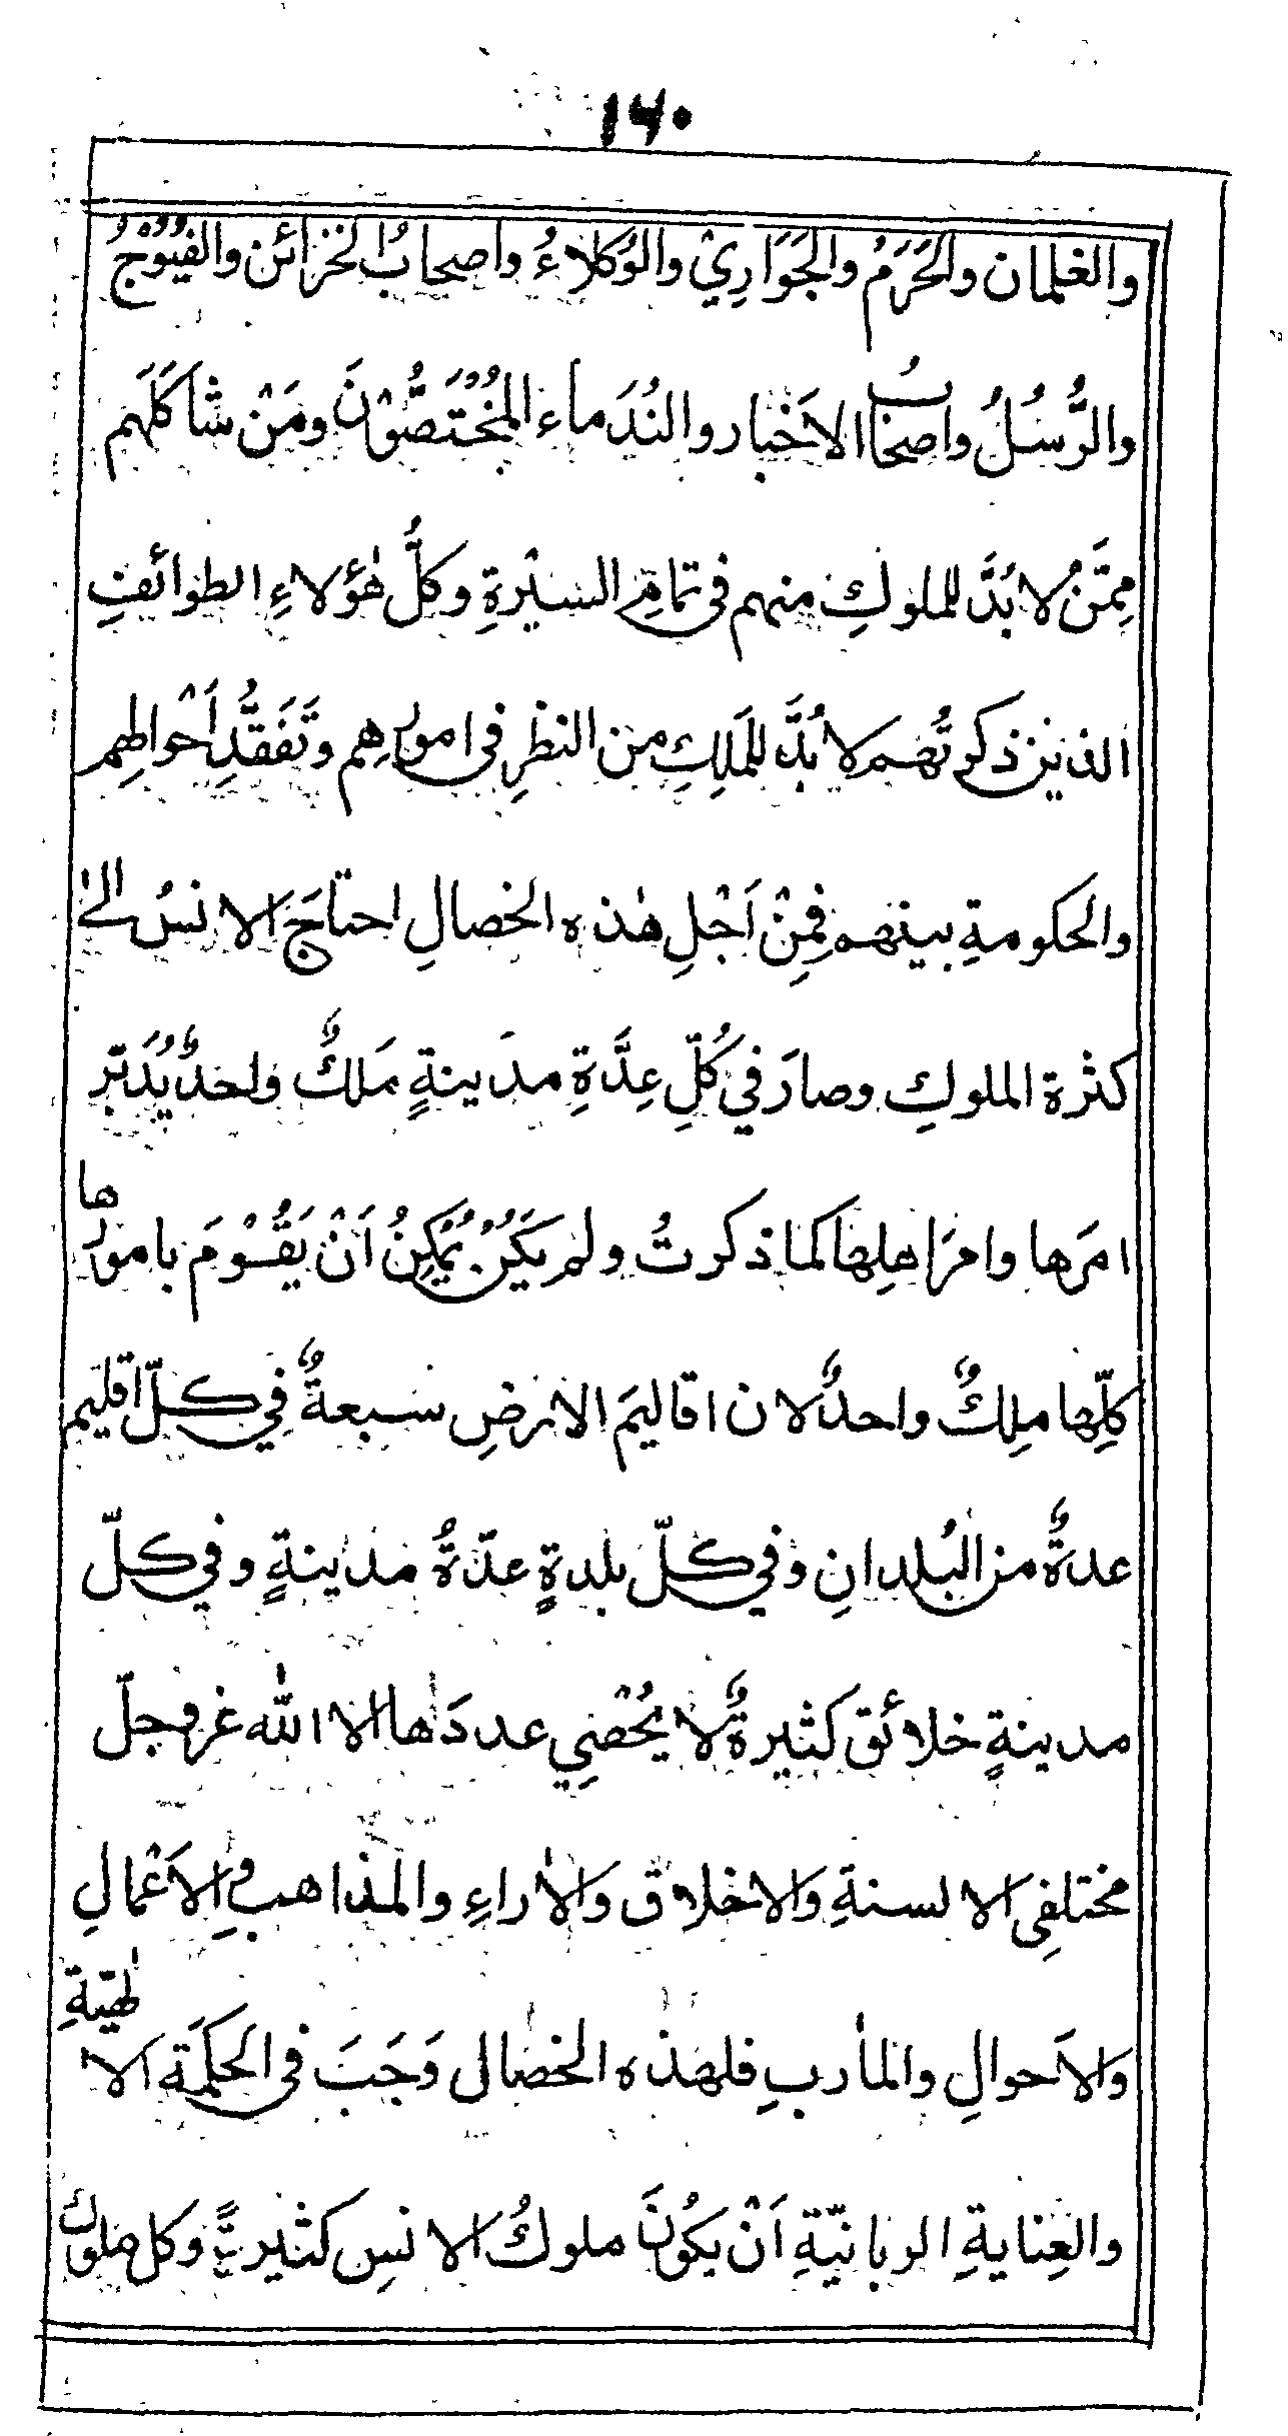 ١٦٠
والغلمان والحَرَمُ والجَوَارِيْ والوُكلاءُ واصحابُ الخزائن والفُيُوْجُ
والرُّسُلُ واصحابُ الاَخبار والنُدَماء المُخْتَصُّوْنَ ومَنْ شاكَلَهم
مِمَّنْ لا بُدَّ للملوكِ منهم فى تمامِ السيْرةِ وكلُّ هٰؤلاءِ الطوائفِ
الذين ذكرتُهم لا بُدَّ للمَلِكِ من النظرِ فى امورِهِم وتَفَقُّدِ اَحْوالِهِم
والحكومةِ بينهم فمِنْ اَجْلِ هٰذه الخصالِ احتاجَ الانسُ الىٰ
كثرة الملوكِ وصارَ في كُلِّ عِدَّةِ مدَينةٍ مَلكٌ واحدٌ يُدَبّر
امرَها وامرَ اهلِها كما ذكرتُ ولم يَكُنْ يُمْكِنُ اَنْ يَقُوْمَ بامورها
كلِّها ملِكٌ واحدٌ لان اقاليمَ الارضِ سبعةٌ في كلّ اقليم
عدةٌ من البُلدانِ وفي كلّ بلدةٍ عدّةُ مدينةٍ وفي كلّ
مدينةٍ خلائق كثيرةٌ لا يُحْصِي عددَها الا اللّٰه عز وجلّ
مختلفِى الالسنةِ والاخلاق وَالاٰراءِ والمذاهبِ والاَعْمالِ
وَالاَحوالِ والماٰربِ فلهٰذه الخصال وَجَبَ فى الحكمَة الالٰهيّةِ
والعِنايةِ الربانيّةِ اَنْ يكُونَ ملوكُ الانسِ كثيرةً وكل ملوك